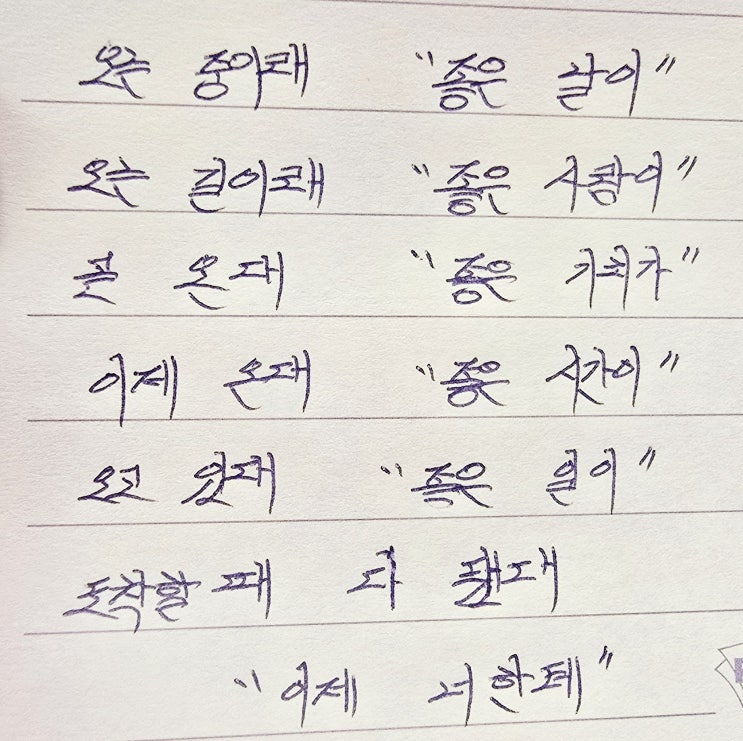 오는 중이래 "좋은 날이"
오는 길이래 "좋은 사람이"
곧 온대 "좋은 기회가"
이제 온대 "좋은 시간이"
오고 있대 "좋은 일이"
도착할 때 다 됐대
"이제 너한테"